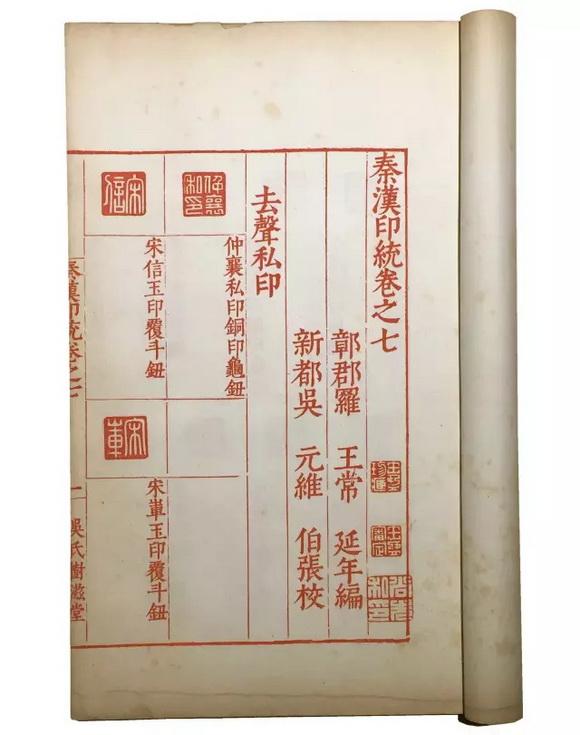 秦漢印統卷之七
鄣郡羅 王常 延年編
新都吳 元維 伯張校
去聲私印
仲襄私印
仲襄私印銅印龜鈕
宋信
宋信玉印覆斗鈕
宋崋玉印覆斗鈕
秦漢印統卷之七
一
吳氏樹滋堂